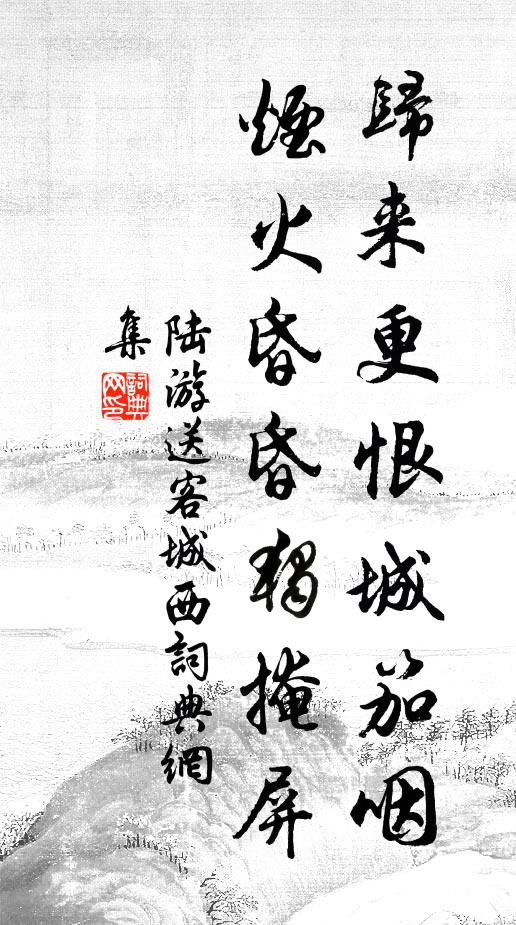 歸来更恨城笳咽
煙火昏昏獨掩屏
陆游送客城西詞典網
集
詞典网印